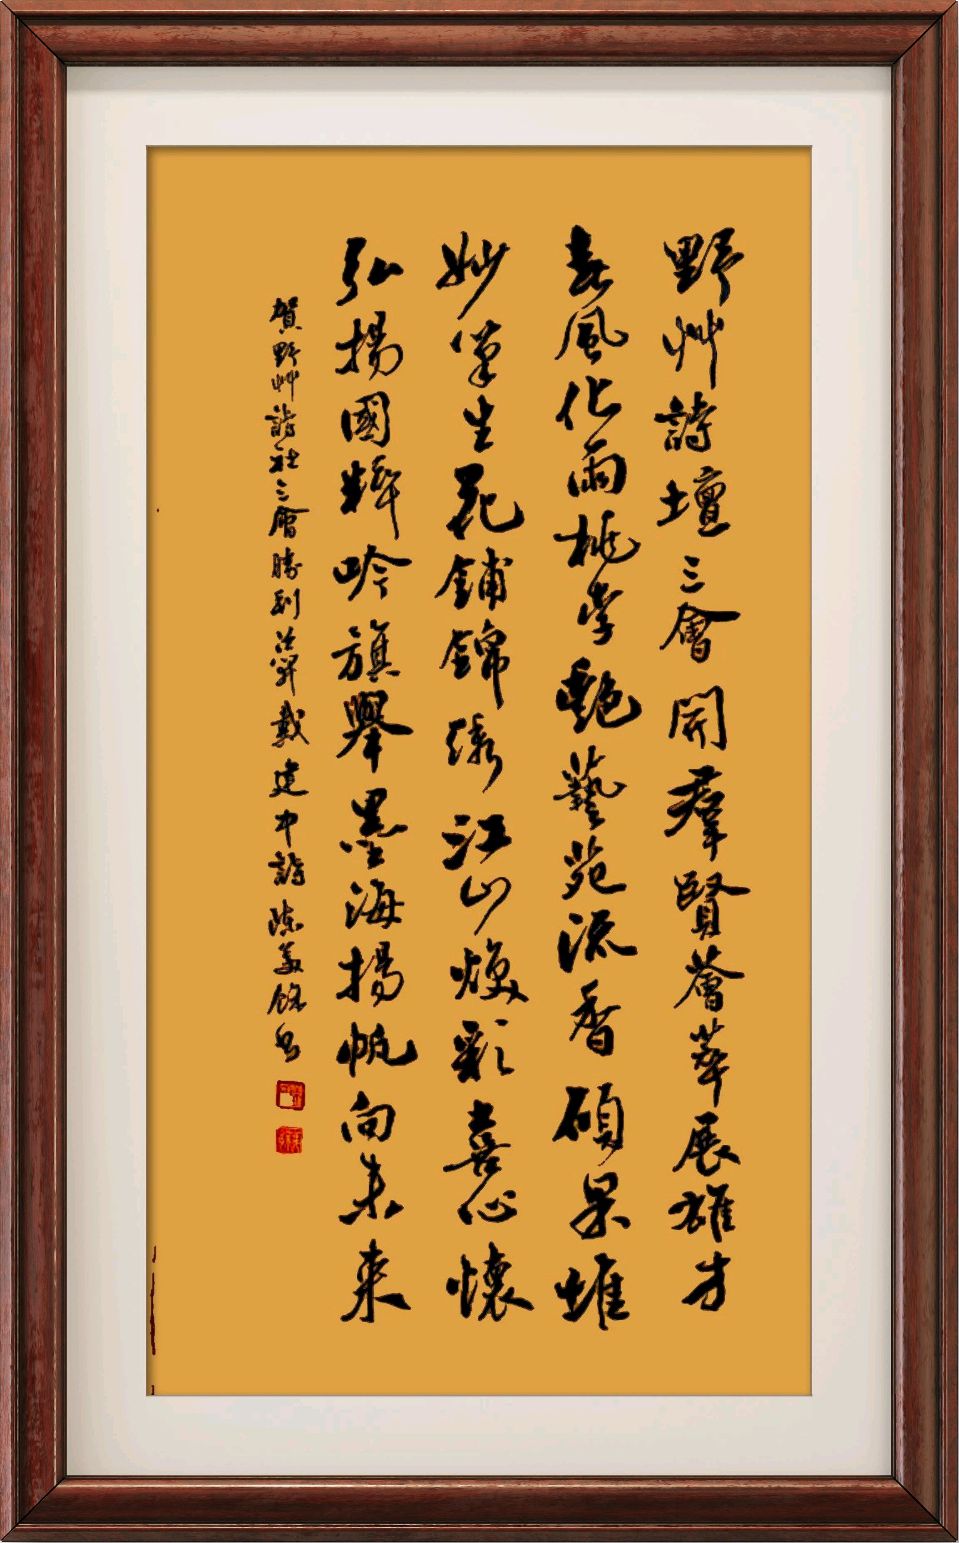 野艸詩壇三會開羣賢薈萃展雄才
春風化雨桃李艷藝苑流香碩果堆
妙筆生花鋪錦綉江山煥彩喜心懷
弘揚國粹吟旗舉墨海揚帆向未來
賀野艸詩社三會勝利戴建中詩陳美書